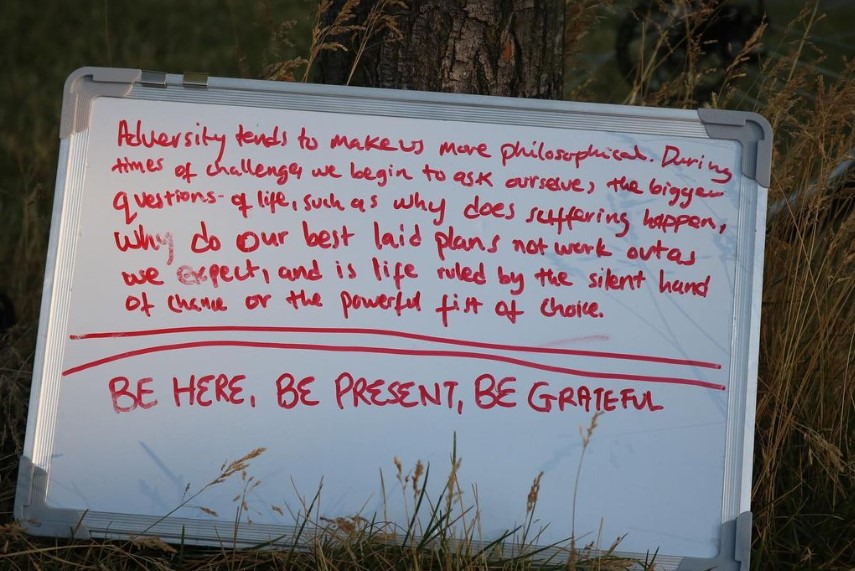 Adversity tends to make us more philosophical. During
times of challenge, we begin to ask ourselves the bigger
questions of life, such as why does suffering happen,
why do our best laid plans not work out as
we expect, and is life ruled by the silent hand
of chance or the powerful fist of choice.
BE HERE, BE PRESENT, BE GRATEFUL